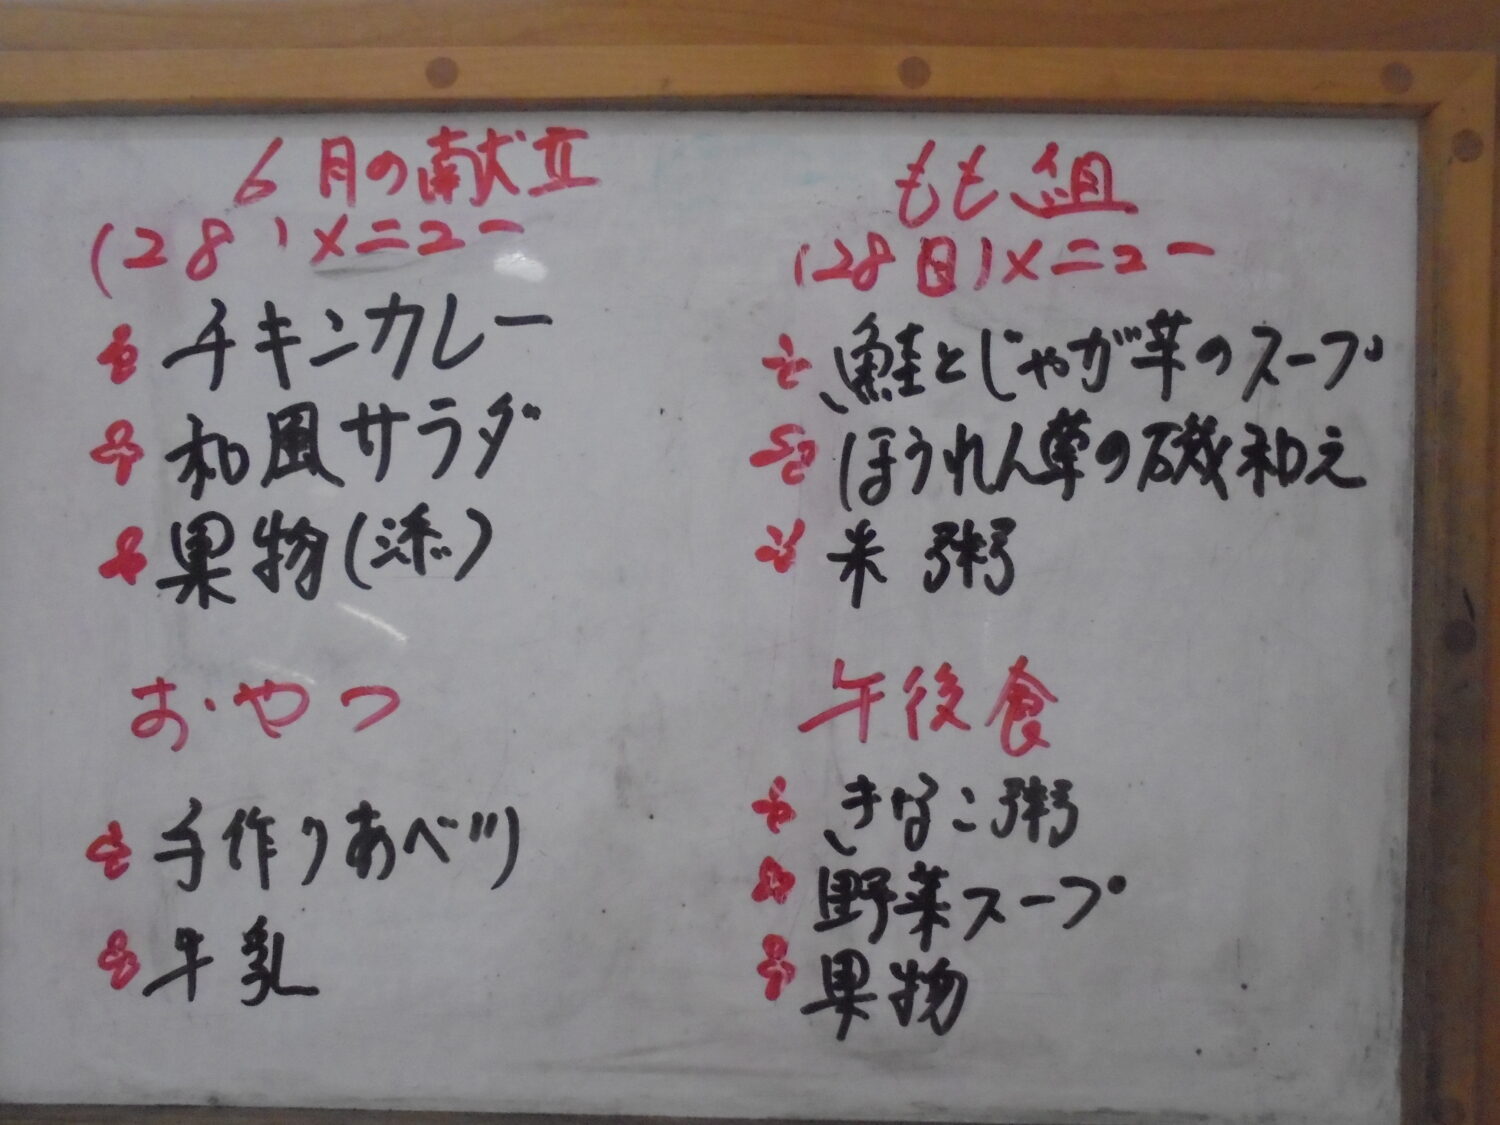 6月の献立
(28)メニュー
チキンカレー
和風サラダ
果物(添)
おやつ
手作りあべツリ
牛乳
もも組
(28日)メニュー
鮭とじゃが芋のスープ
ほうれん草の磯和え
米粥
午後食
きなこ粥
野菜スープ
果物